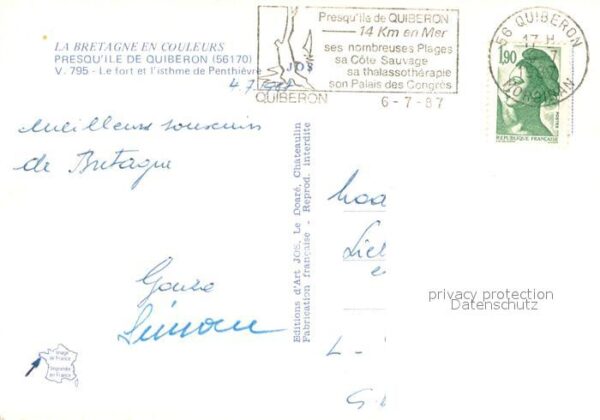 LA BRETAGNE EN COULEURS
PRESQU'ILE DE QUIBERON (56170)
V. 795 - Le fort et l'isthme de Penthièvre
4.7.1987
JOS
QUIBERON
Presqu'île de QUIBERON
14 Km en Mer
ses nombreuses Plages
sa Côte Sauvage
sa thalassothérapie
son Palais des Congrès
6-7-87
56 QUIBERON
17 H
MORBIHAN
1,90
REPUBLIQUE FRANÇAISE
Meilleurs souvenirs
de Bretagne
Simon
Editions d'Art JOS, Le Doaré, Chateaulin
Fabrication française - Reprod. interdite
privacy protection
Datenschutz
Image
de France
Imprimée
en France